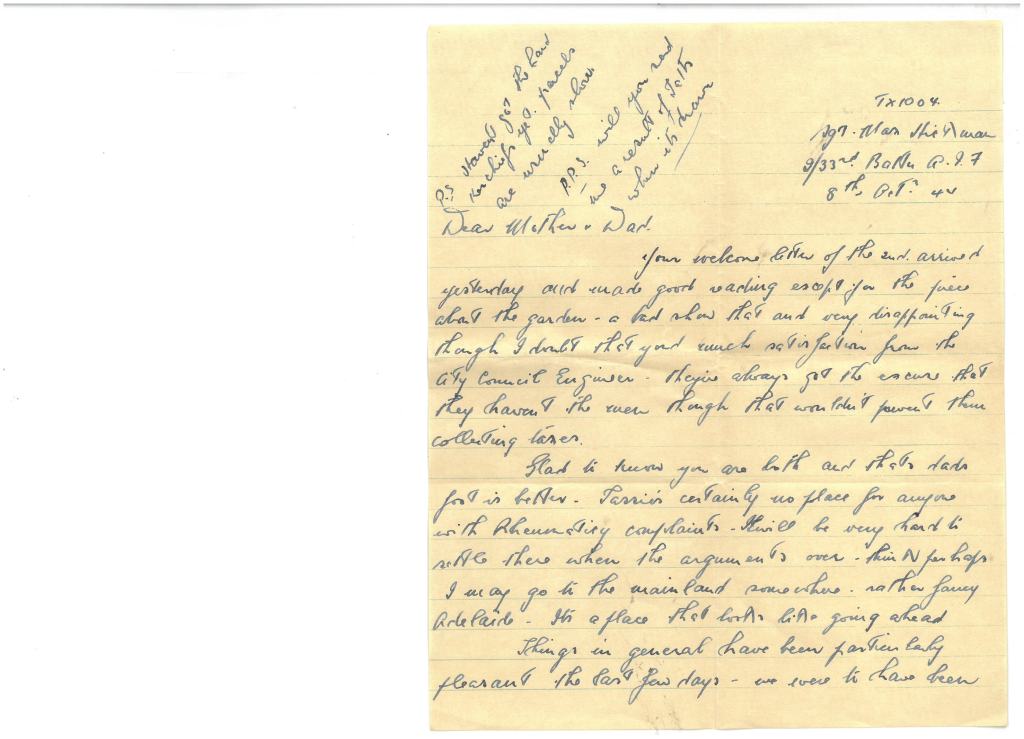 P.S Havent got the hand
kerchiefs yet. parcels
are usually slow.
P.P.S. will you send
me a result of Tatts
when its drawn
TX1004.
Sgt. Max Hickman
2/33rd Battn A.I.F
8th Oct. 42
Dear Mother & Dad.
Your welcome letter of the 2nd. arrived
yesterday and made good reading except for the piece
about the garden - a bad show that and very disappointing
though I doubt that you'd much satisfaction from the
City Council Engineer - they've always got the excuse that
they havent the men though that wouldn't prevent them
collecting taxes.
Glad to know you are both and thats dads
foot is better. Tassie's certainly no place for anyone
with Rheumaticy complaints - It will be very hard to
settle there when the arguments over - think perhaps
I may go to the mainland somewhere. rather fancy
Adelaide - Its a place that looks like going ahead
Things in general have been particularly
pleasant the last few days - we were to have been